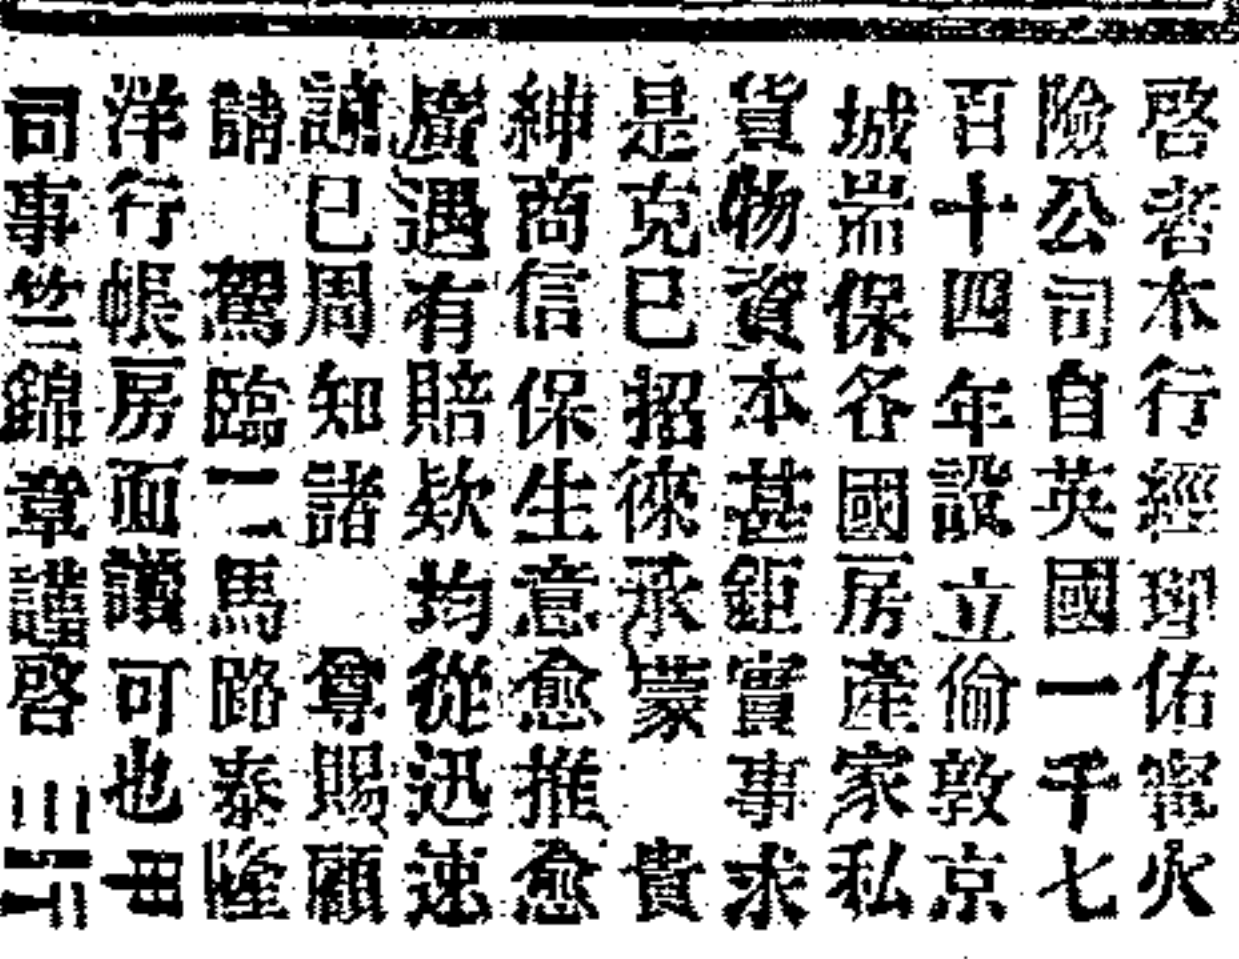 啓者本行經理佑寗火
險公司自英國一千七
百十四年設立倫敦京
城耑保各國房產家私
貨物資本甚鉅實事求
是克已招徠承蒙 貴
紳商信保生意愈推愈
廣遇有賠欵均從迅速
諒已周知諸 尊賜顧
請 駕臨二馬路泰隆
洋行帳房面議可也
司事竺錦章謹啓